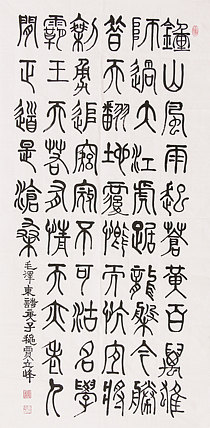 鍾山風雨起蒼黃百萬雄
師過大江虎踞龍盤今勝
昔天翻地覆慨而慷宜將
剩勇追窮寇不可沽名學
霸王天若有情天亦老人
間正道是滄桑
毛澤東詩庚子穐賈立峰